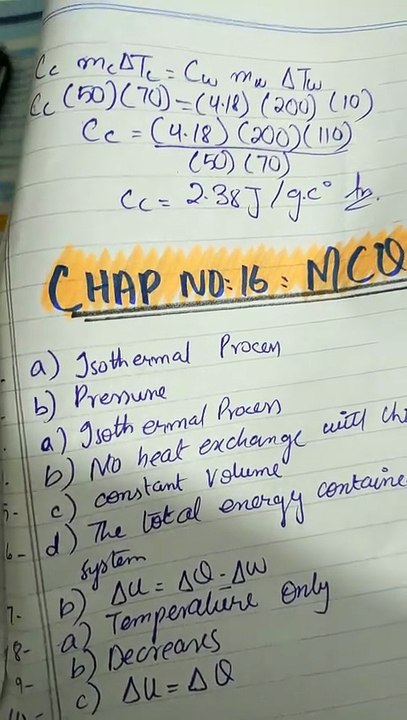 Cc mcΔTc = Cw mw ΔTw
Cc (50)(70) = (4.18) (200) (10)
Cc = (4.18) (200)(110)
(50) (70)
Cc = 2.38 J / g.c°
CHAP NO: 16 : MCQ
a) Isothermal Process
b) Pressure
a) Isothermal Process
b) No heat exchange with
5- c) constant volume
6- d) The total energy containe
system
7- b) ΔU = ΔQ - ΔW
8- a) Temperature only
9- b) Decreases
c) ΔU = ΔQ